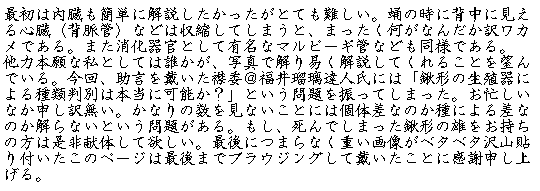 最初は内臓も簡単に解説したかったがとても難しい。蛹の時に背中に見え
る心臓（背脈管）などは収縮してしまうと、まったく何がなんだか訳ワカ
メである。また消化器官として有名なマルピーギ管なども同様である。
他力本願な私としては誰かが、写真で解り易く解説してくれることを望ん
でいる。今回、助言を戴いた＠福井瑠璃達人氏には「鍬形の生殖器に
よる種類判別は本当に可能か？」という問題を振ってしまった。お忙しい
なか申し訳無い。かなりの数を見ないことには個体差なのか種による差な
のか解らないという問題がある。もし、死んでしまった鍬形の雄をお持ち
の方は是非献体して欲しい。最後につまらなく重い画像がベタベタ沢山貼
り付いたこのページは最後までブラウジングして戴いたことに感謝申し上
げる。